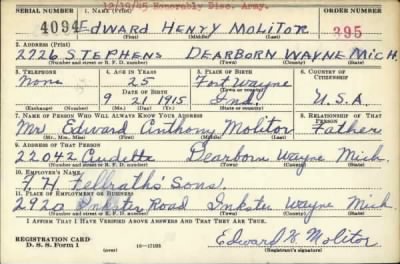 12/19/45 Honorably Disc. Army.
SERIAL NUMBER 1. NAME (Print) ORDER NUMBER
4094 EDWARD HENRY MOLITOR 395
2. ADDRESS (Print)
2226 STEPHENS DEARBORN WAYNE MICH
(Number and street or R. F. D. number)
3. TELEPHONE 4. AGE IN YEARS 5. PLACE OF BIRTH 6. COUNTRY OF CITIZENSHIP
None 25 Fort Wayne
DATE OF BIRTH
9 21 1915 Ind. U.S.A.
(Exchange) (Number) (Mo.) (Day) (Yr.) (State or country)
7. NAME OF PERSON WHO WILL ALWAYS KNOW YOUR ADDRESS 8. RELATIONSHIP OF THAT PERSON
Mr. Edward Anthony Molitor Father
(Mr., Mrs., Miss) (First) (Middle) (Last)
9. ADDRESS OF THAT PERSON
22042 Dearborn Wayne Mich.
(Number and street or R. F. D. number) (Town) (County) (State)
10. EMPLOYER'S NAME
Sons.
11. PLACE OF EMPLOYMENT OR BUSINESS
2920 Inkster Road Inkster Wayne Mich
(Number and street or R. F. D. number) (Town) (County) (State)
I AFFIRM THAT I HAVE VERIFIED ABOVE ANSWERS AND THAT THEY ARE TRUE.
REGISTRATION CARD
D. S. S. Form 1 16—17105 Edward H Molitor
(Registrant's signature)